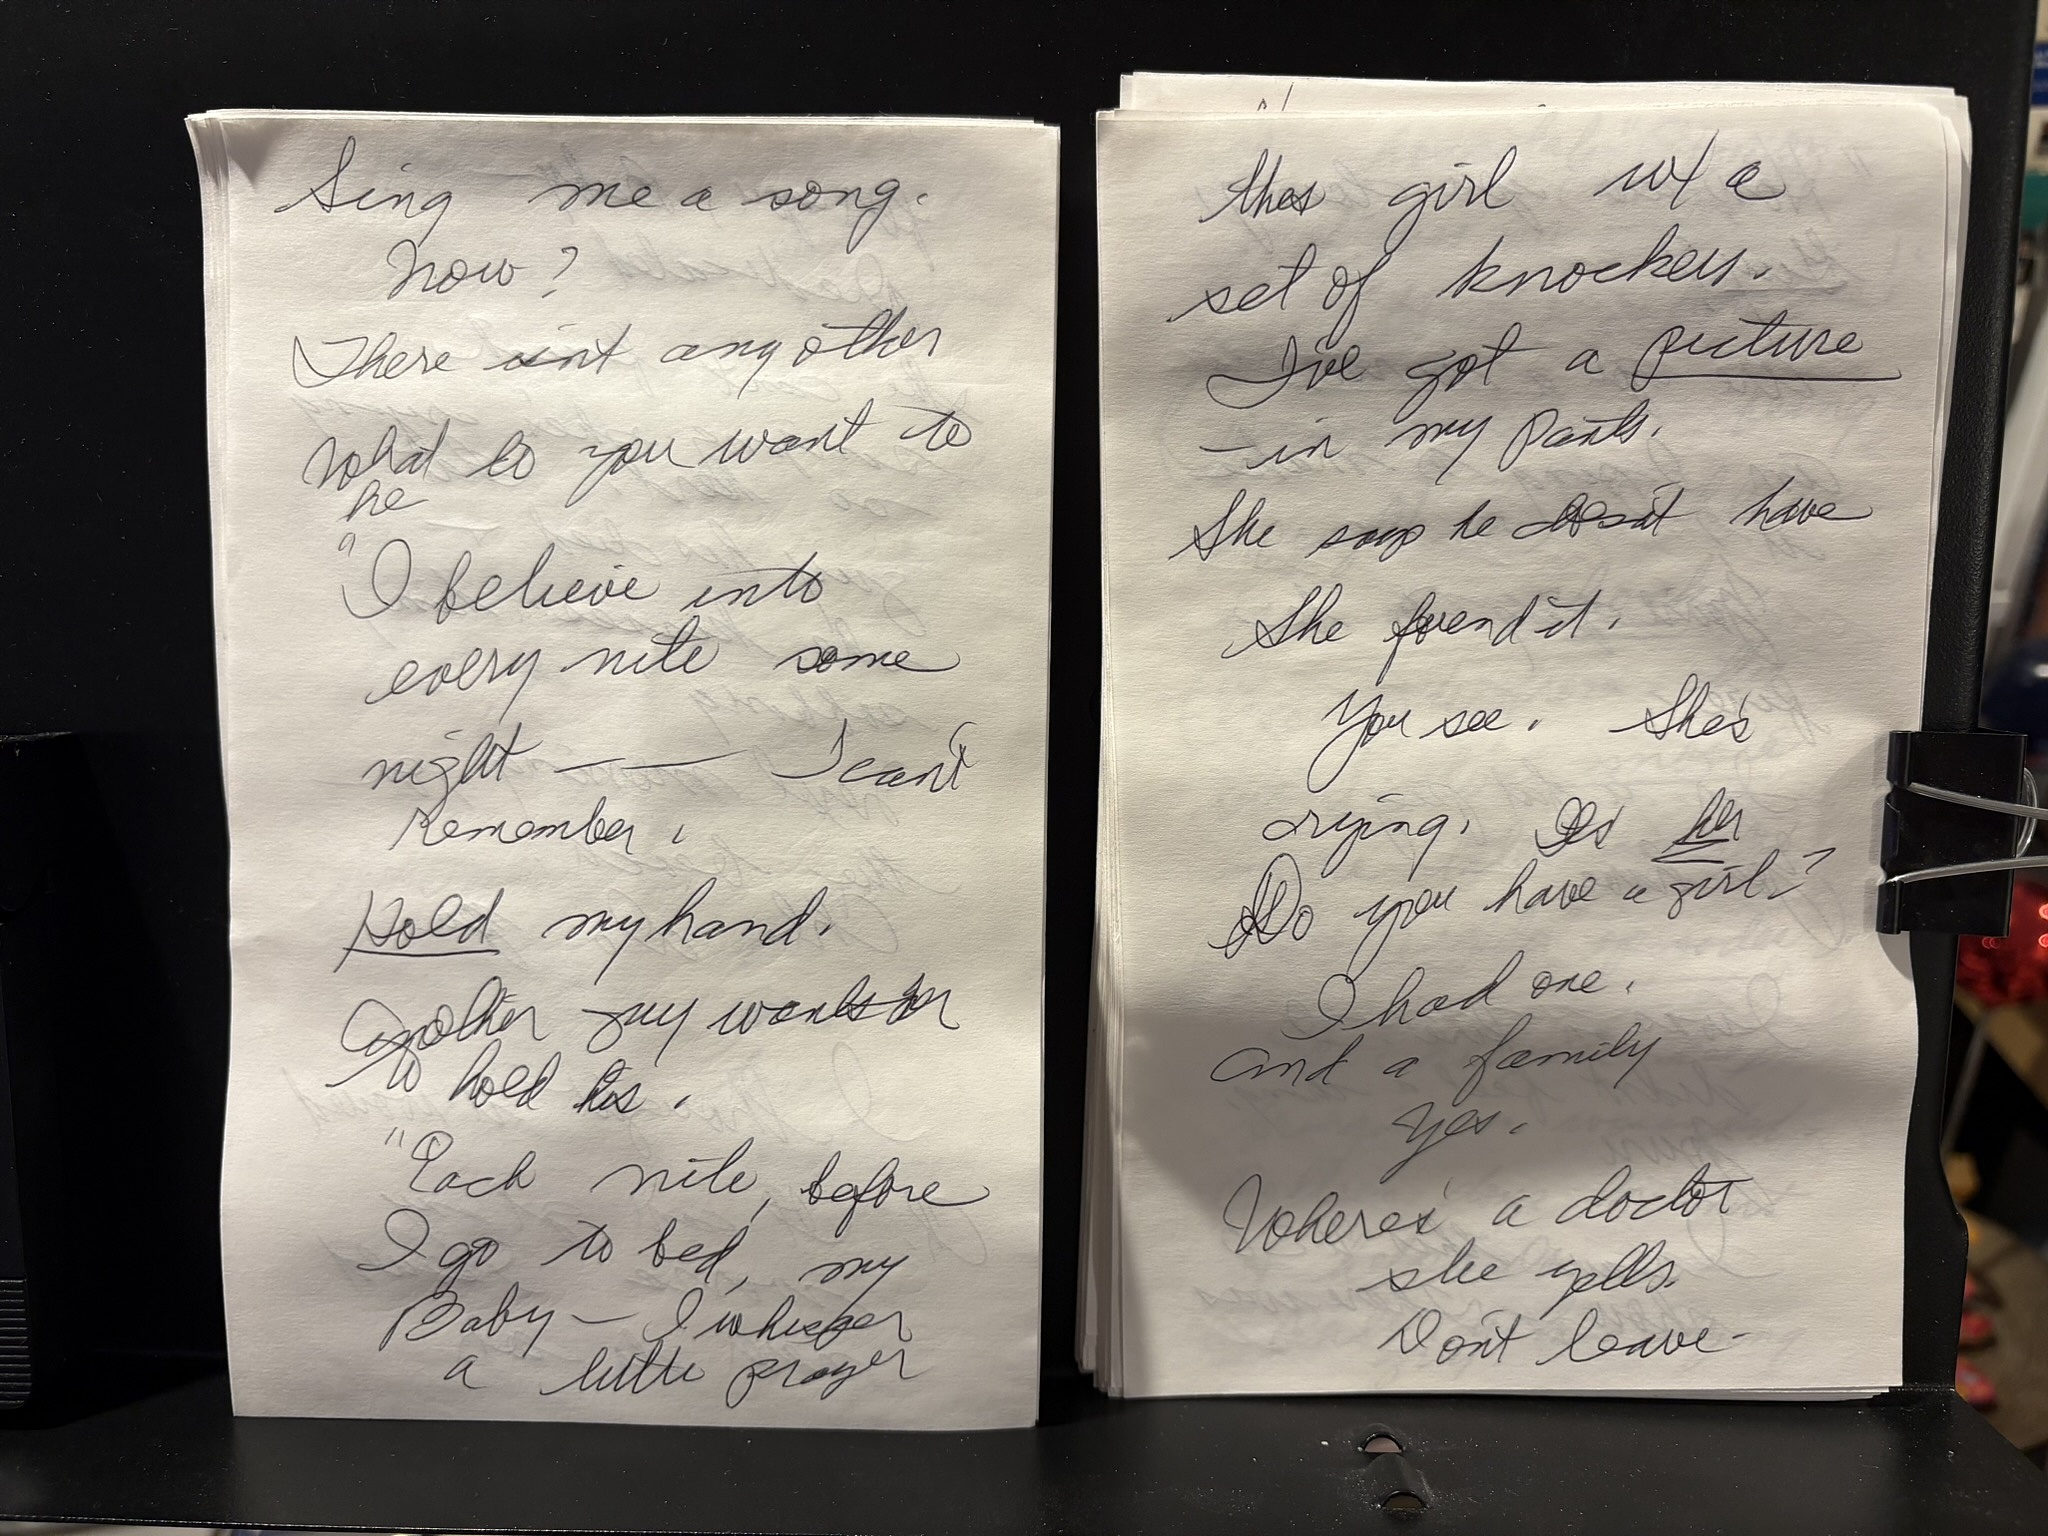 Sing me a song.
Now?
There isnt any other
What do you want to
he
"I believe into
every nite some
night —— I cant
Remember.
Hold my hand.
Another guy wants her
to hold his.
"Each nite, before
I go to bed, my
Baby — I whisper
a little prayer
this girl w/ a
set of knockers.
I've got a picture
- in my pants.
She says he doesn't have
She found it.
You see. She's
crying. Its her
Do you have a girl?
I had one.
And a family
Yes.
Where's a doctor
she yells.
Don't leave-